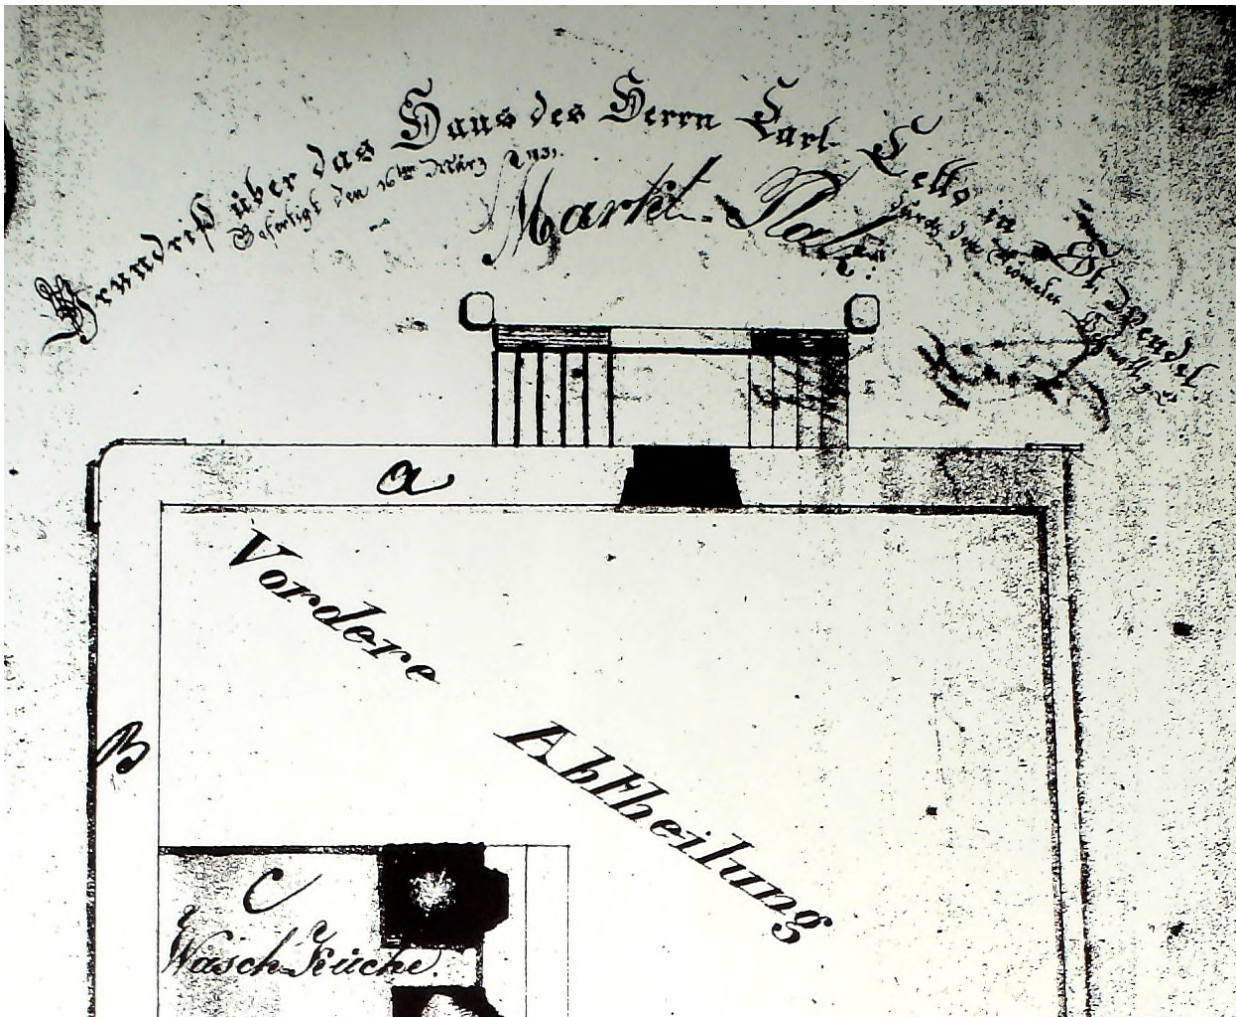 Grundriß über das Haus des Herrn Carl Cetto in St. Wendel
Gefertigt den 16ten März 1831.
durch den Geometer
Markt-Platz.
a
Vordere
Abtheilung
B
C
Wasch-Küche.